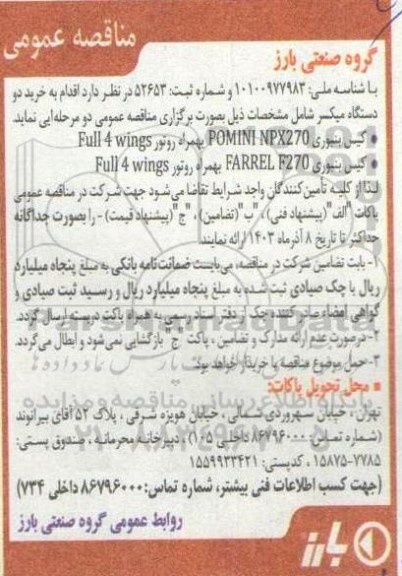 مناقصه عمومی
گروه صنعتی بارز
با شناسه ملی: ۱۰۱۰۰۹۷۷۹۸۳ و شماره ثبت: ۵۲۶۵۳ در نظر دارد اقدام به خرید دو
دستگاه میکسر شامل مشخصات ذیل بصورت برگزاری مناقصه عمومی دو مرحله‌ایی نماید.
• کیس بنبوری POMINI NPX270 بهمراه روتور Full 4 wings
• کیس بنبوری FARREL F270 بهمراه روتور Full 4 wings
لذا از کلیه تأمین‌کنندگان واجد شرایط تقاضا می‌شود جهت شرکت در مناقصه عمومی
پاکات "الف" (پیشنهاد فنی)، "ب" (تضامین)، "ج" (پیشنهاد قیمت) - را بصورت جداگانه
حداکثر تا تاریخ ۸ آذرماه ۱۴۰۳ ارائه نمایند.
۱- بابت تضامین شرکت در مناقصه، می‌بایست ضمانت‌نامه بانکی به مبلغ پنجاه میلیارد
ریال یا چک صیادی ثبت شده به مبلغ پنجاه میلیارد ریال و رسید ثبت صیادی و
گواهی امضاء صادرکننده چک از دفتر اسناد رسمی به همراه پاکت دربسته ارسال گردد.
۲- درصورت عدم ارائه مدارک و تضامین، پاکت "ج" بازگشایی نمی‌شود و ابطال می‌گردد.
۳- حمل موضوع مناقصه با خریدار خواهد بود.
■ محل تحویل پاکات:
تهران، خیابان سهروردی شمالی، خیابان هویزه شرقی، پلاک ۵۲ آقای بیرانوند
(شماره تماس: ۸۶۷۹۶۰۰۰ داخلی ۱۶۵)، دبیرخانه محرمانه، صندوق پستی:
۱۵۸۷۵-۷۷۸۵، کدپستی: ۱۵۵۹۹۳۳۴۲۱
(جهت کسب اطلاعات فنی بیشتر، شماره تماس: ۸۶۷۹۶۰۰۰ داخلی ۷۳۴)
روابط عمومی گروه صنعتی بارز
بارز